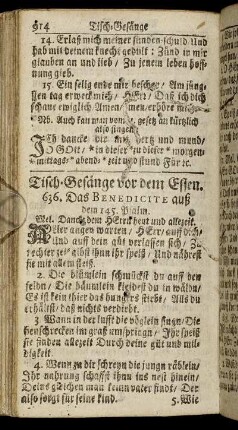 914 Tisch-Gesänge
14. Erlaß mich meiner sünden-schuld/Und
hab mit deinem knecht gedult: Zünd in mir
glauben an und lieb/ Zu jenem leben hoff-
nung gieb.
15. Ein selig ende mir bescher/ Am jüng-
sten tag erweck mich/ HErr/ Daß ich dich
schaue ewiglich Amen/ Amen/ erhöre mich.
NB. Auch kan man vom gesetz an kürtzlich
also singen:
Ich dancke dir mit hertz und mund/
O GOtt in dieser morgen-
mittags- abend- zeit und stund Für etc.
Tisch-Gesänge vor dem Essen.
636. Das BENEDICITE auß
dem 145. Psalm.
Mel. Danckt dem HErrn heut und allezeit.
Aller augen warten/ HErr/ auff dich/
Und auff dein güt verlassen sich/ Zu
rechter zeit gibst ihn ihr speiß/ Und nährest
sie mit allem fleiß.
2. Die blümlein schmückst du auf den
felden/ Die bäumlein kleidest du in wäldn/
Es ist kein thier das bestünde/ Als du
erhältst/ daß nichts verdirbt.
3. Wann in der lufft die vöglein singn/ Die
heuschrecken im graß umspringn/ Ihr speiß
sie finden allezeit Durch deine güt und mil-
digkeit.
4. Wenn zu dir schreyn die jungn räblein/
Ihr nahrung schaffst ihnn ins nest hinein/
Deins gleichen man kein vater findt/ Der
also sorgt für seine kind. 5. Wie